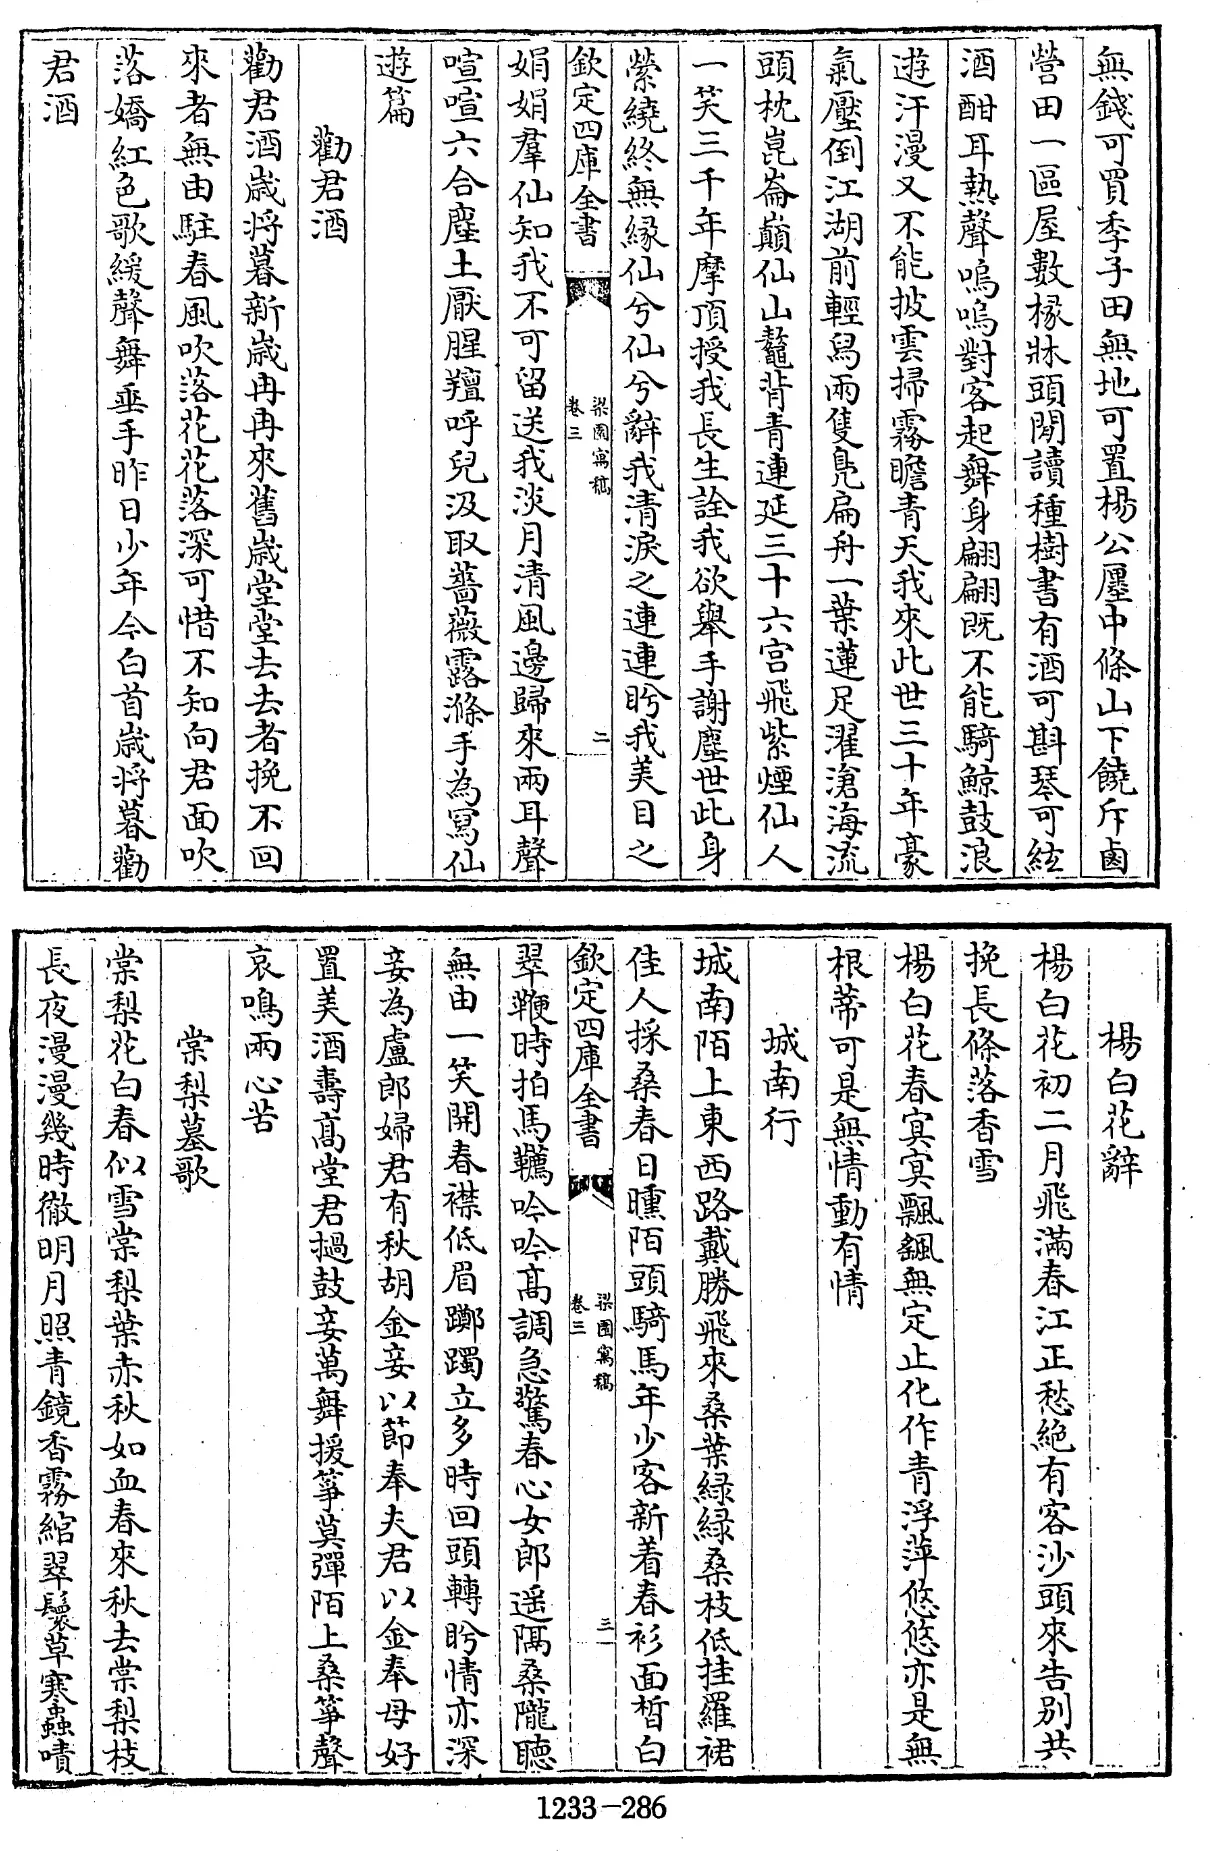 無錢可買季子田無地可置楊公廛中條山下饒斥鹵
營田一區屋數椽牀頭閒讀種樹書有酒可斟琴可絃
酒酣耳熱聲嗚嗚對客起舞身翩翩既不能騎鯨鼓浪
遊汗漫又不能披雲掃霧瞻青天我來此世三十年豪
氣壓倒江湖前輕舄兩隻鳧扁舟一葉蓮足濯滄海流
頭枕崑崙巔仙山鼇背青連延三十六宮飛紫煙仙人
一笑三千年摩頂授我長生詮我欲舉手謝塵世此身
縈繞終無縁仙兮仙兮辭我清淚之連連盻我美目之
欽定四庫全書
梁園寓稿
卷三
二
娟娟羣仙知我不可留送我淡月清風邊歸來兩耳聲
喧喧六合塵土厭腥羶呼兒汲取薔薇露滌手為寫仙
遊篇
勸君酒
勸君酒歳將暮新歳冉冉來舊歳堂堂去去者挽不回
來者無由駐春風吹落花花落深可惜不知向君面吹
落嬌紅色歌緩聲舞垂手昨日少年今白首歳將暮勸
君酒
楊白花辭
楊白花初二月飛滿春江正愁絶有客沙頭來告別共
挽長條落香雪
楊白花春寘寘飄颻無定止化作青浮萍悠悠亦是無
根蒂可是無情動有情
城南行
城南陌上東西路戴勝飛來桑葉緑緑桑枝低挂羅裙
佳人採桑春日曛陌頭騎馬年少客新着春衫面皙白
欽定四庫全書
梁園寓稿
卷三
三
翠鞭時拍馬韉吟吟髙調急驚春心女郎遥隔桑隴聽
無由一笑開春襟低眉躑躅立多時回頭轉盻情亦深
妾為盧郎婦君有秋胡金妾以節奉夫君以金奉母好
置美酒壽髙堂君撾鼓妾萬舞援箏莫彈陌上桑箏聲
哀鳴兩心苦
棠梨墓歌
棠梨花白春似雪棠梨葉赤秋如血春來秋去棠梨枝
長夜漫漫幾時徹明月照青鏡香霧綰翠鬟草寒蟲嘖
1233-286